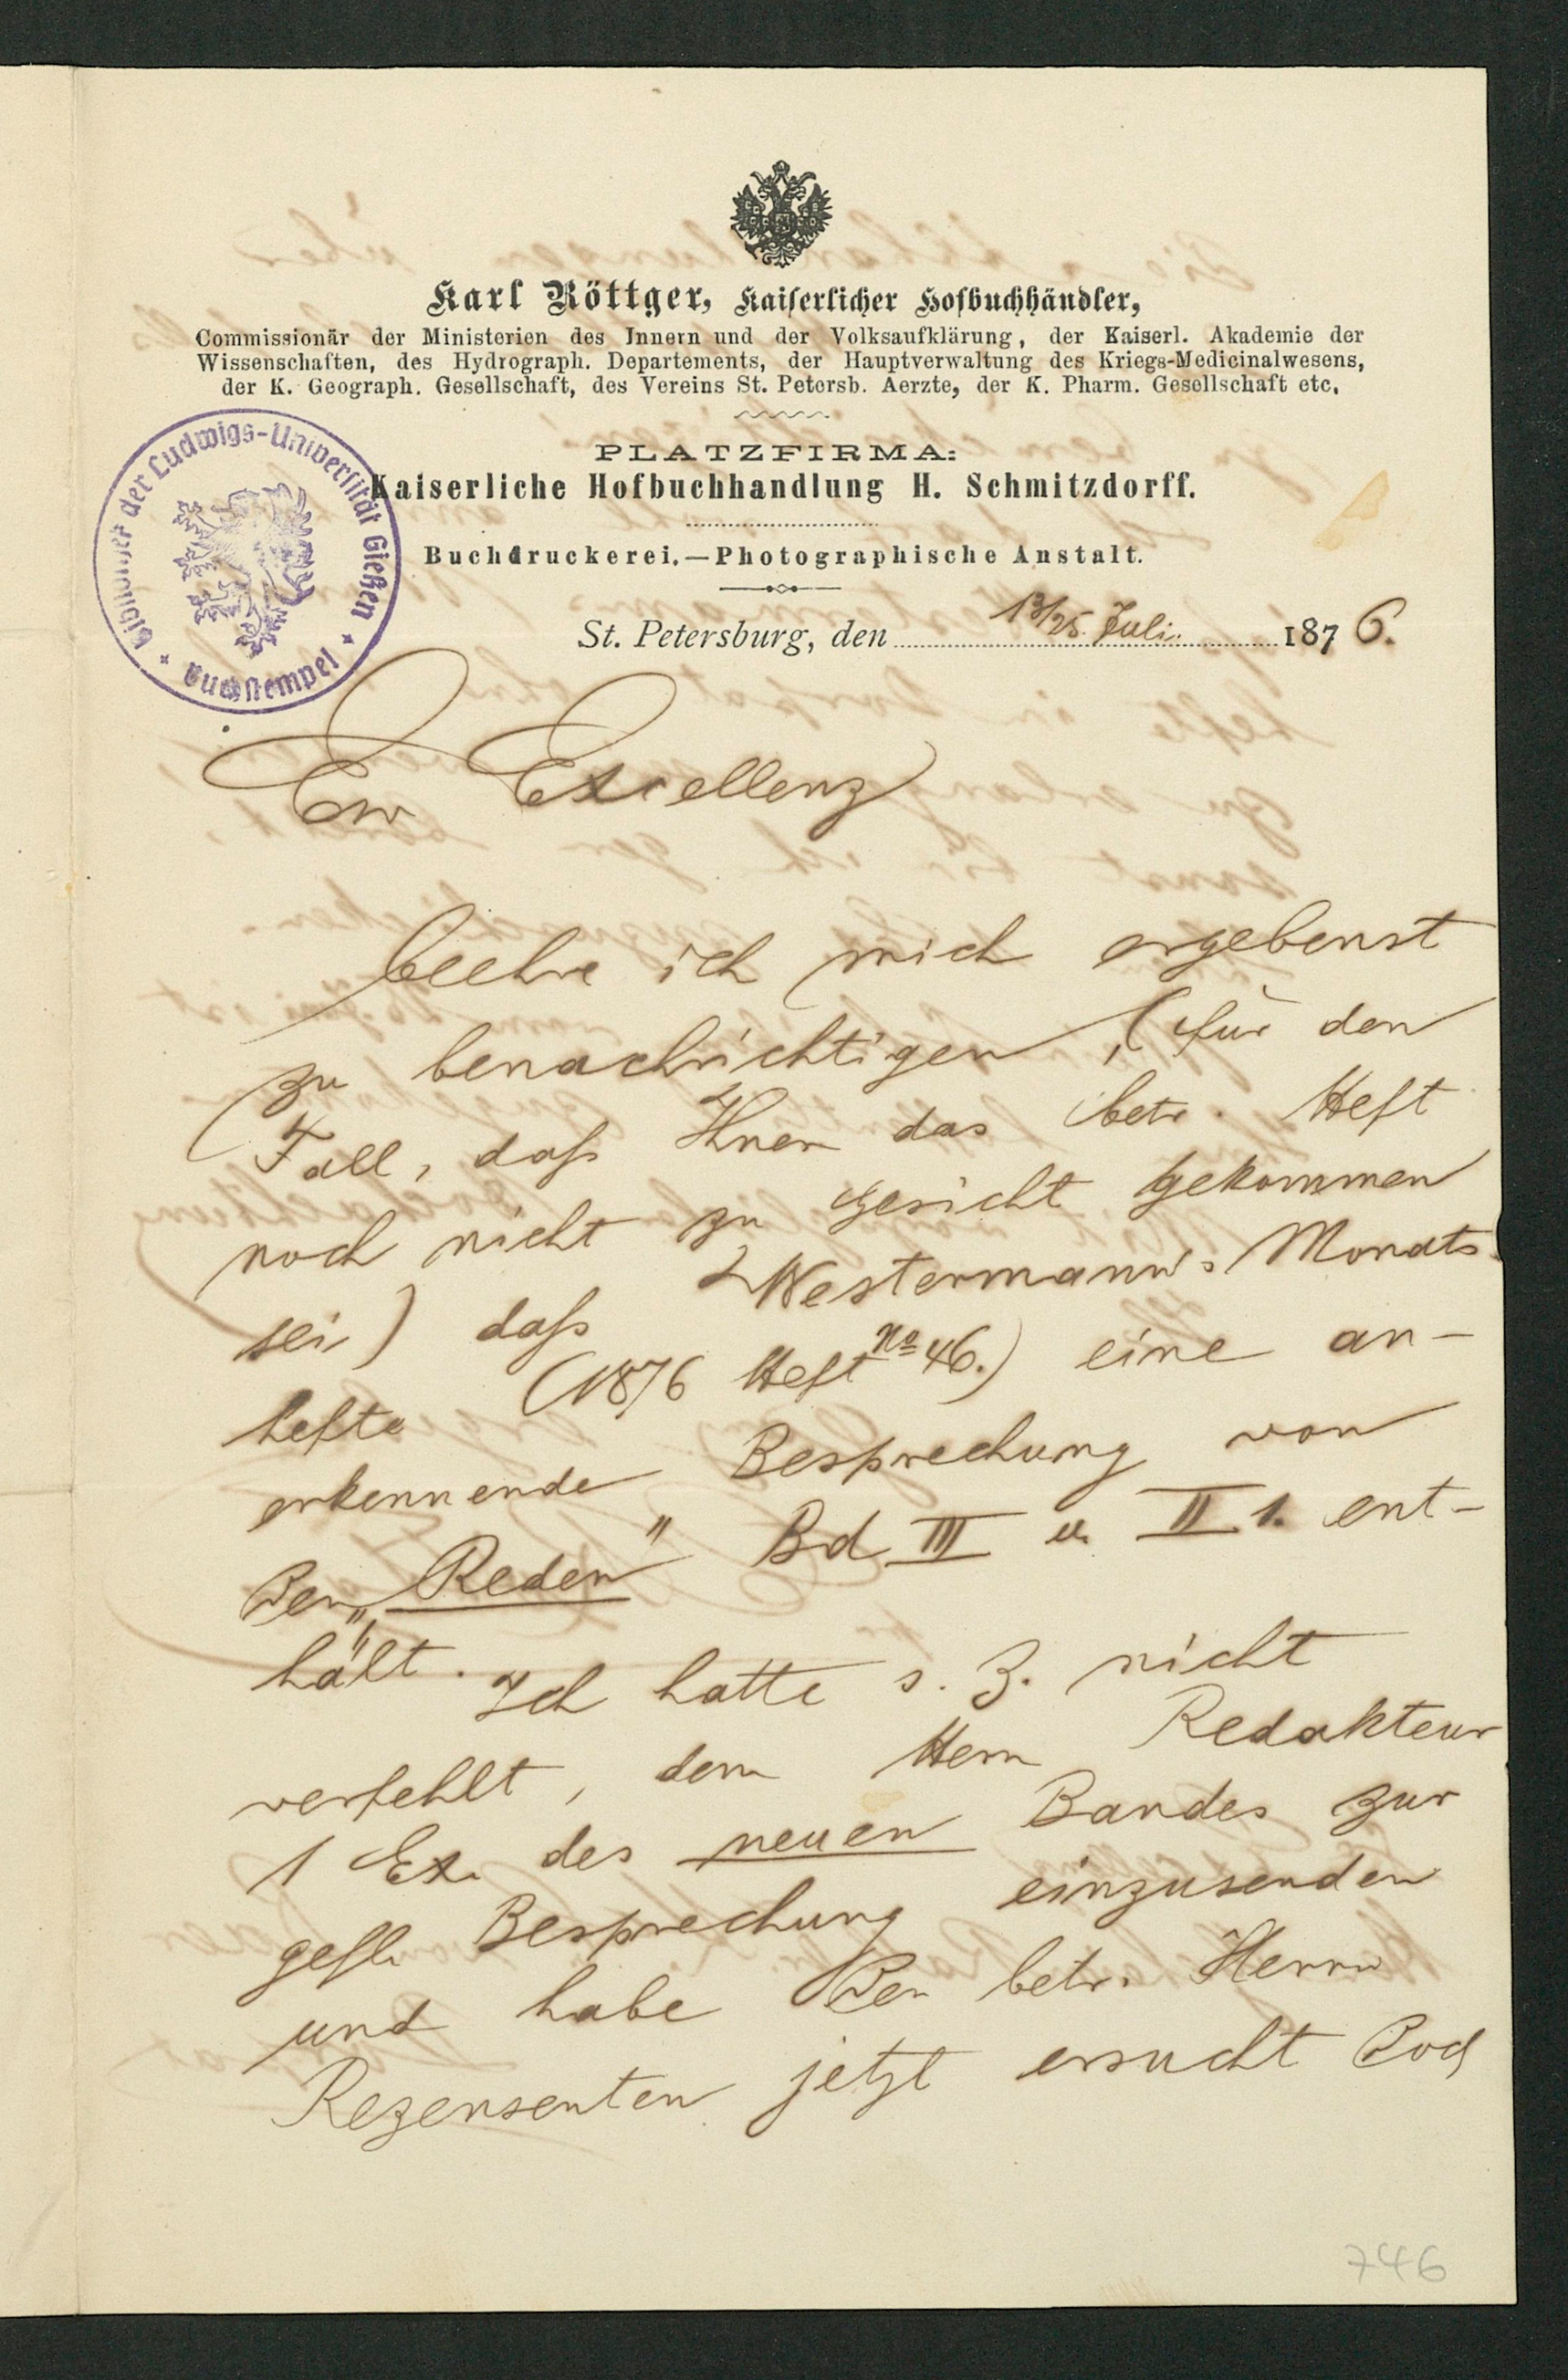 Karl Röttger, Kaiserlicher Hofbuchhändler,
Commissionär der Ministerien des Innern und der Volksaufklärung, der Kaiserl. Akademie der
Wissenschaften, des Hydrograph. Departements, der Hauptverwaltung des Kriegs-Medicinalwesens,
der K. Geograph. Gesellschaft, des Vereins St. Petersb. Aerzte, der K. Pharm. Gesellschaft etc.
PLATZFIRMA:
Kaiserliche Hofbuchhandlung H. Schmitzdorff.
Buchdruckerei.—Photographische Anstalt.
der Ludwigs-Universität Gießen
Buchstempel
St. Petersburg, den 13/25. Juli 1876.
Ew Excellenz
beehre ich mich ergebenst
zu benachrichtigen, (für den
Fall, daß Ihnen das betr. Heft
noch nicht zu Gesicht gekommen
sei) daß Westermann's Monats-
hefte (1876 Heft No 46.) eine an-
erkennende Besprechung von
den „Reden" Bd III u II 1. ent-
hält. Ich hatte s. Z. nicht
verfehlt, dem Herrn Redakteur
1 Ex. des neuen Bandes zur
gefl. Besprechung einzusenden
und habe den betr. Herrn
Rezensenten jetzt ersucht doch
746